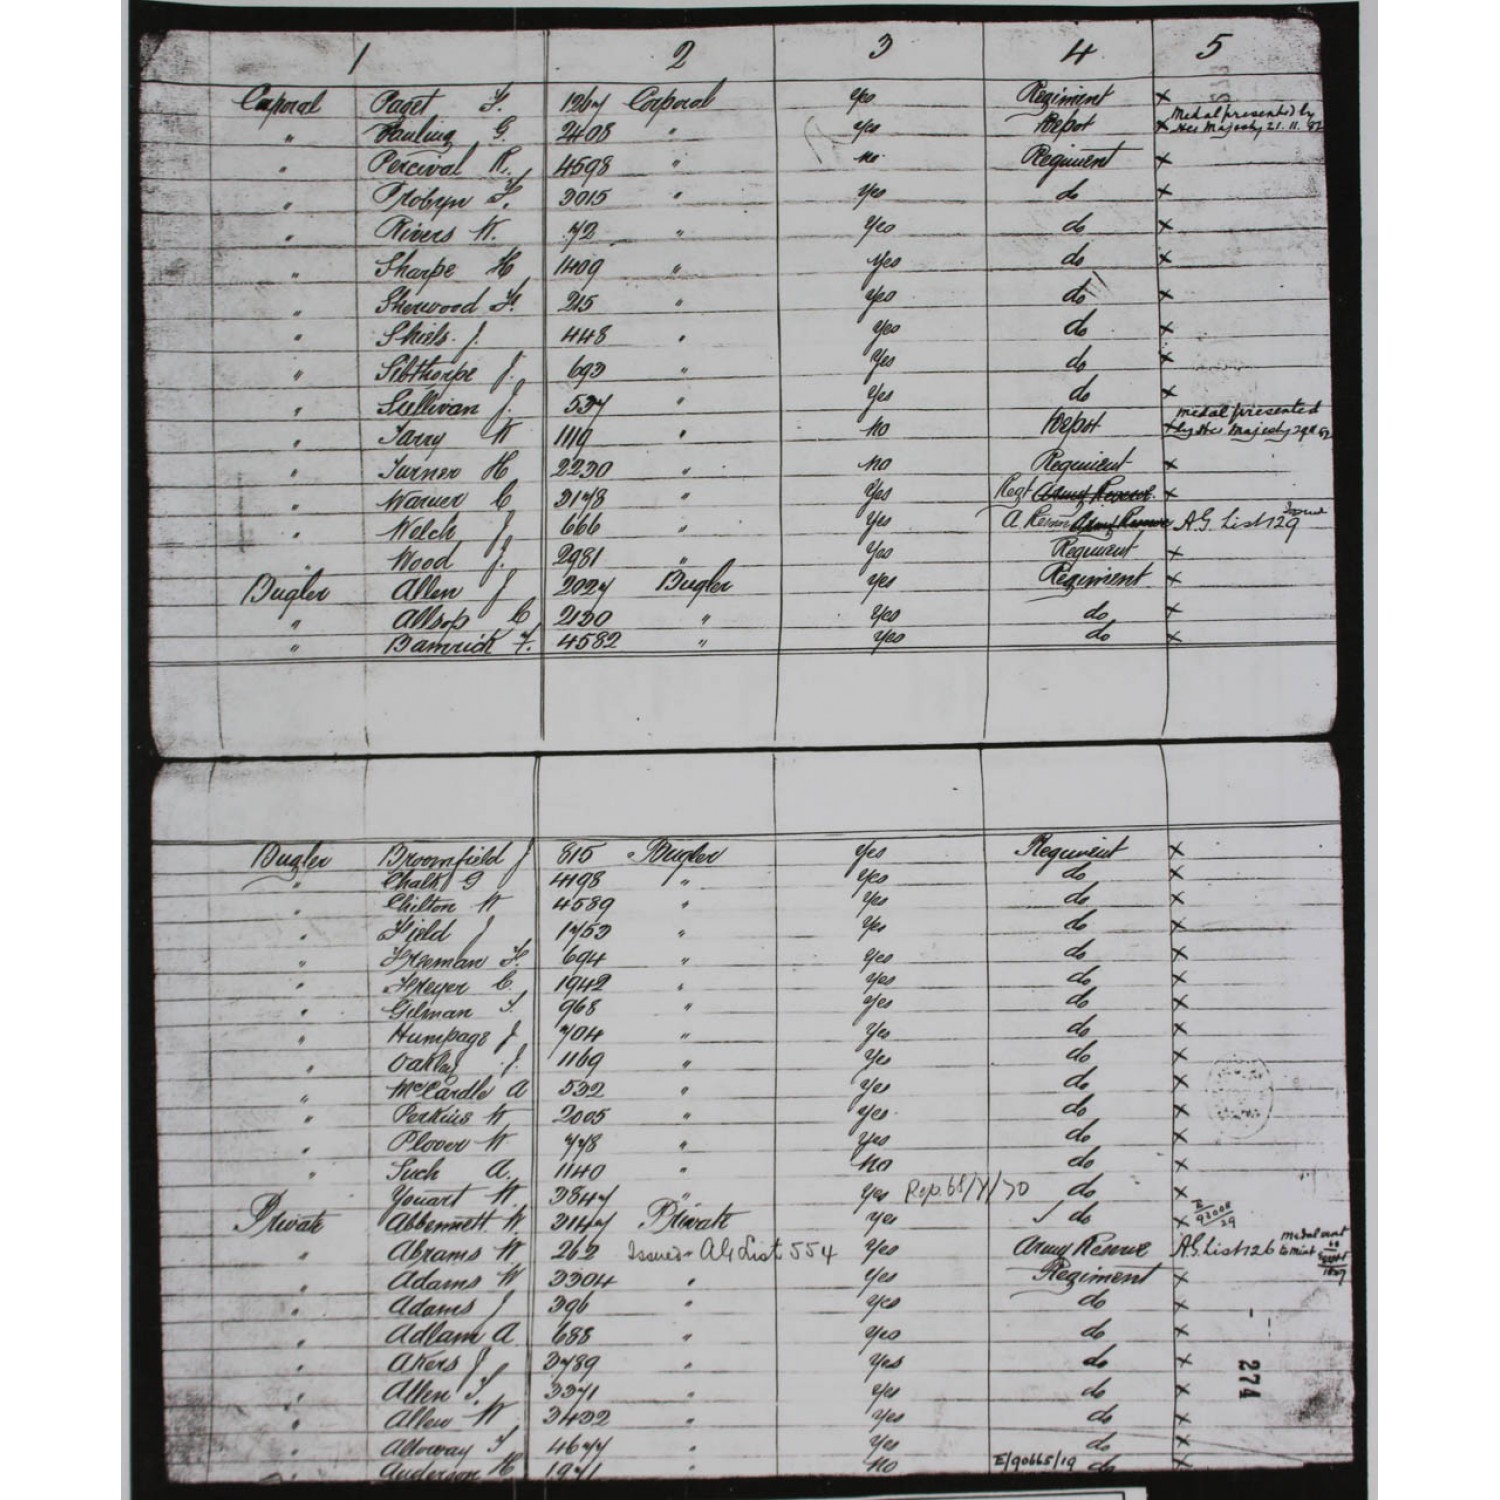 1 2 3 4 5
Corporal Paget F. 1267 Corporal Yes Regiment x
" Pauling G. 2408 " Yes Depot x Medal presented by Her Majesty 21.11.82
" Percival R. 4598 " No Regiment x
" Probyn F. 3015 " Yes do x
" Rivers W. 72 " Yes do x
" Sharpe H 1409 " Yes do x
" Sherwood F. 215 " Yes do x
" Shiels J. 448 " Yes do x
" Sibthorpe J. 693 " Yes do x
" Sullivan J. 537 " Yes do x
" Tarry W 1119 " No Depot x medal presented by Her Majesty
" Turner H 2230 " No Regiment x
" Warner C 3178 " Yes Regt Army Reserve x
" Welch J 666 " Yes A. Reserve Army Reserve A.G. List 129 Issued
" Wood J. 2981 " Yes Regiment x
Bugler Allen J 2027 Bugler Yes Regiment x
" Allsop C 2130 " Yes do x
" Bamrick F. 4582 " Yes do x
Bugler Broomfield J 815 Bugler Yes Regiment x
" Chalk G 4198 " Yes do x
" Chilton W 4589 " Yes do x
" Field J 1753 " Yes do x
" Freeman F. 694 " Yes do x
" Freyer C. 1942 " Yes do x
" Gilman T. 968 " Yes do x
" Humpage J 704 " Yes do x
" Oakley J. 1169 " Yes do x
" McCardle A 532 " Yes do x
" Perkins W 2005 " Yes do x
" Plover W 778 " Yes do x
" Such A. 1140 " No do x
" Youart W. 3847 " Yes Rep. 68/7/70 do x
Private Abbennett W. 3147 Private Yes do x
" Abrams W 262 Issued A.G. List 554 Yes Army Reserve A.G. List 126 medal sent to mint
" Adams W 3304 " Yes Regiment x
" Adams J 396 " Yes do x
" Adlam A 688 " Yes do x
" Akers J 3789 " Yes do x
" Allen T. 3371 " Yes do x
" Allen W 3432 " Yes do x
" Alloway T 4677 " Yes do x
" Anderson H 1971 " No E/90665/19 do x
274